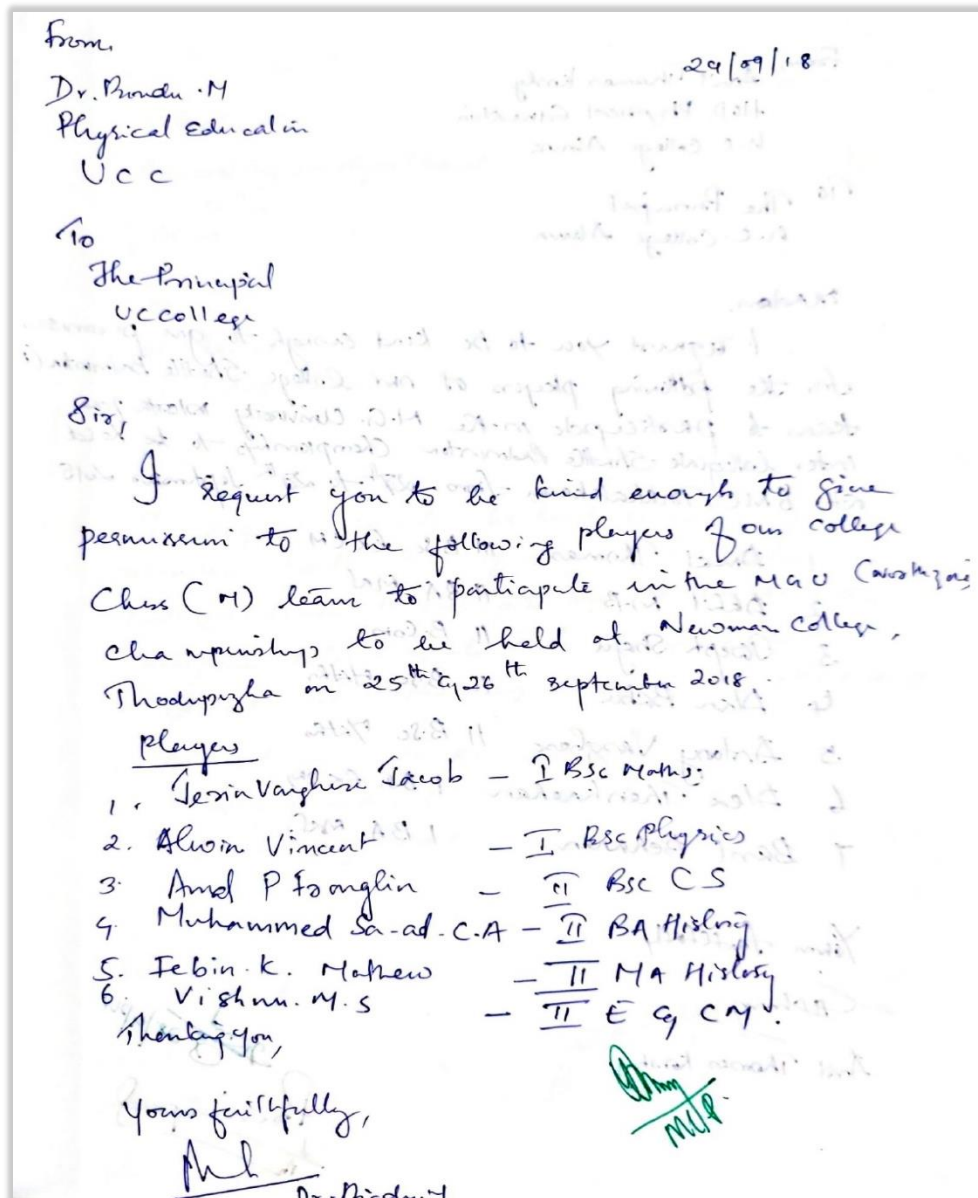 From,
29/09/18
Dr. Bindu .M
Physical Education
UCC
To
The Principal
UC college
Sir,
I request you to be kind enough to give
permission to the following players of our college
Chess (M) team to participate in the MGU
championship to be held at Newman College,
Thodupuzha on 25th & 26th september 2018.
Players
1. Jerin Varghese Jacob - I BSc Maths.
2. Alwin Vincent - I BSc Physics
3. Amal P Franglin - II BSc CS
4. Muhammed Sa-ad. C.A - II BA History
5. Febin. K. Mathew - II MA History
6. Vishnu. M.S - II E & CM.
Thanking you,
Yours faithfully,